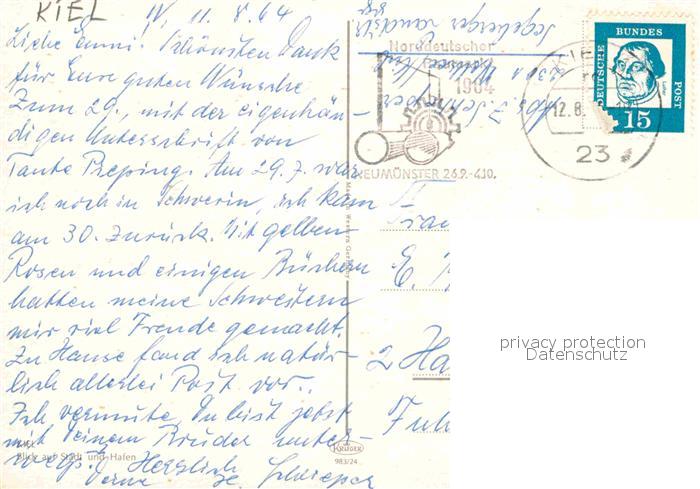 KIEL
IV, 11.8.64
Liebe Emmi! Schönsten Dank
für Eure guten Wünsche
zum 29., mit der eigenhän-
digen Unterschrift von
Tante Preping. Am 29.7. war
ich noch in Schwerin, ich kam
am 30. zurück. Mit gelben
Rosen und einigen Büchern
hatten meine Schwestern
mir viel Freude gemacht.
Zu Hause fand ich natür-
lich allerlei Post vor.
Ich vermute, Du bist jetzt
mit Deinem Bruder unter-
wegs? Herzlich
Deine
KIEL
Blick auf Stadt und Hafen
KRÜGER
983/24
Segeberger Landstr.
Norddeutscher
1964
NEUMÜNSTER 26.9.-4.10.
KIEL
12.8.
23
DEUTSCHE BUNDES POST
Luther
15
Frau
E.
2 Ha
Fuh
privacy protection
Datenschutz